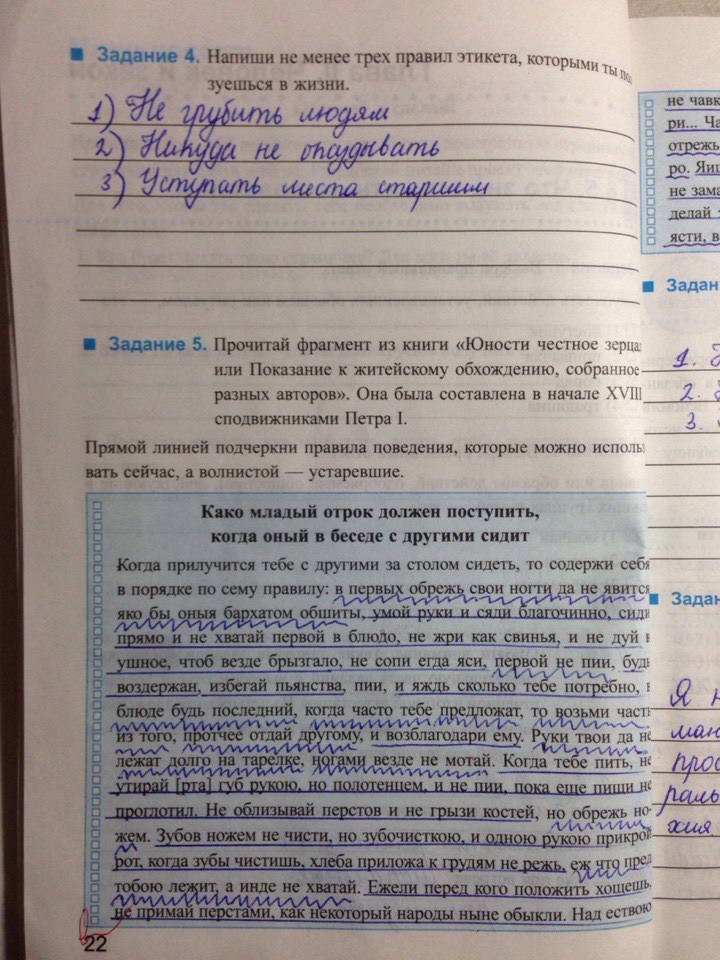 Задание 4. Напиши не менее трех правил этикета, которыми ты поль
зуешься в жизни.
1) Не грубить людям
2) Никуда не опаздывать
3) Уступать места старшим
Задание 5. Прочитай фрагмент из книги «Юности честное зерца
или Показание к житейскому обхождению, собранное
разных авторов». Она была составлена в начале XVIII
сподвижниками Петра I.
Прямой линией подчеркни правила поведения, которые можно исполь
вать сейчас, а волнистой — устаревшие.
Како младый отрок должен поступить,
когда оный в беседе с другими сидит
Когда прилучится тебе с другими за столом сидеть, то содержи себя
в порядке по сему правилу: в первых обрежь свои ногти да не явится
яко бы оныя бархатом обшиты, умой руки и сяди благочинно, сиди
прямо и не хватай первой в блюдо, не жри как свинья, и не дуй в
ушное, чтоб везде брызгало, не сопи егда яси, первой не пии, будь
воздержан, избегай пьянства, пии, и яждь сколько тебе потребно, в
блюде будь последний, когда часто тебе предложат, то возьми часть
из того, протчее отдай другому, и возблагодари ему. Руки твои да не
лежат долго на тарелке, ногами везде не мотай. Когда тебе пить, не
утирай [рта] губ рукою, но полотенцем, и не пии, пока еще пищи не
проглотил. Не облизывай перстов и не грызи костей, но обрежь но-
жем. Зубов ножем не чисти, но зубочисткою, и одною рукою прикрой
рот, когда зубы чистишь, хлеба приложа к грудям не режь, еж что пред
тобою лежит, а инде не хватай. Ежели перед кого положить хощешь,
не примай перстами, как некоторый народы ныне обыкли. Над ествою
22
не чавк
ри... Ча
отрежь
ро. Яиц
не зама
делай
ясти, в
Задан
1.
2.
3.
Задан
Я н
ман
прос
раль
хия